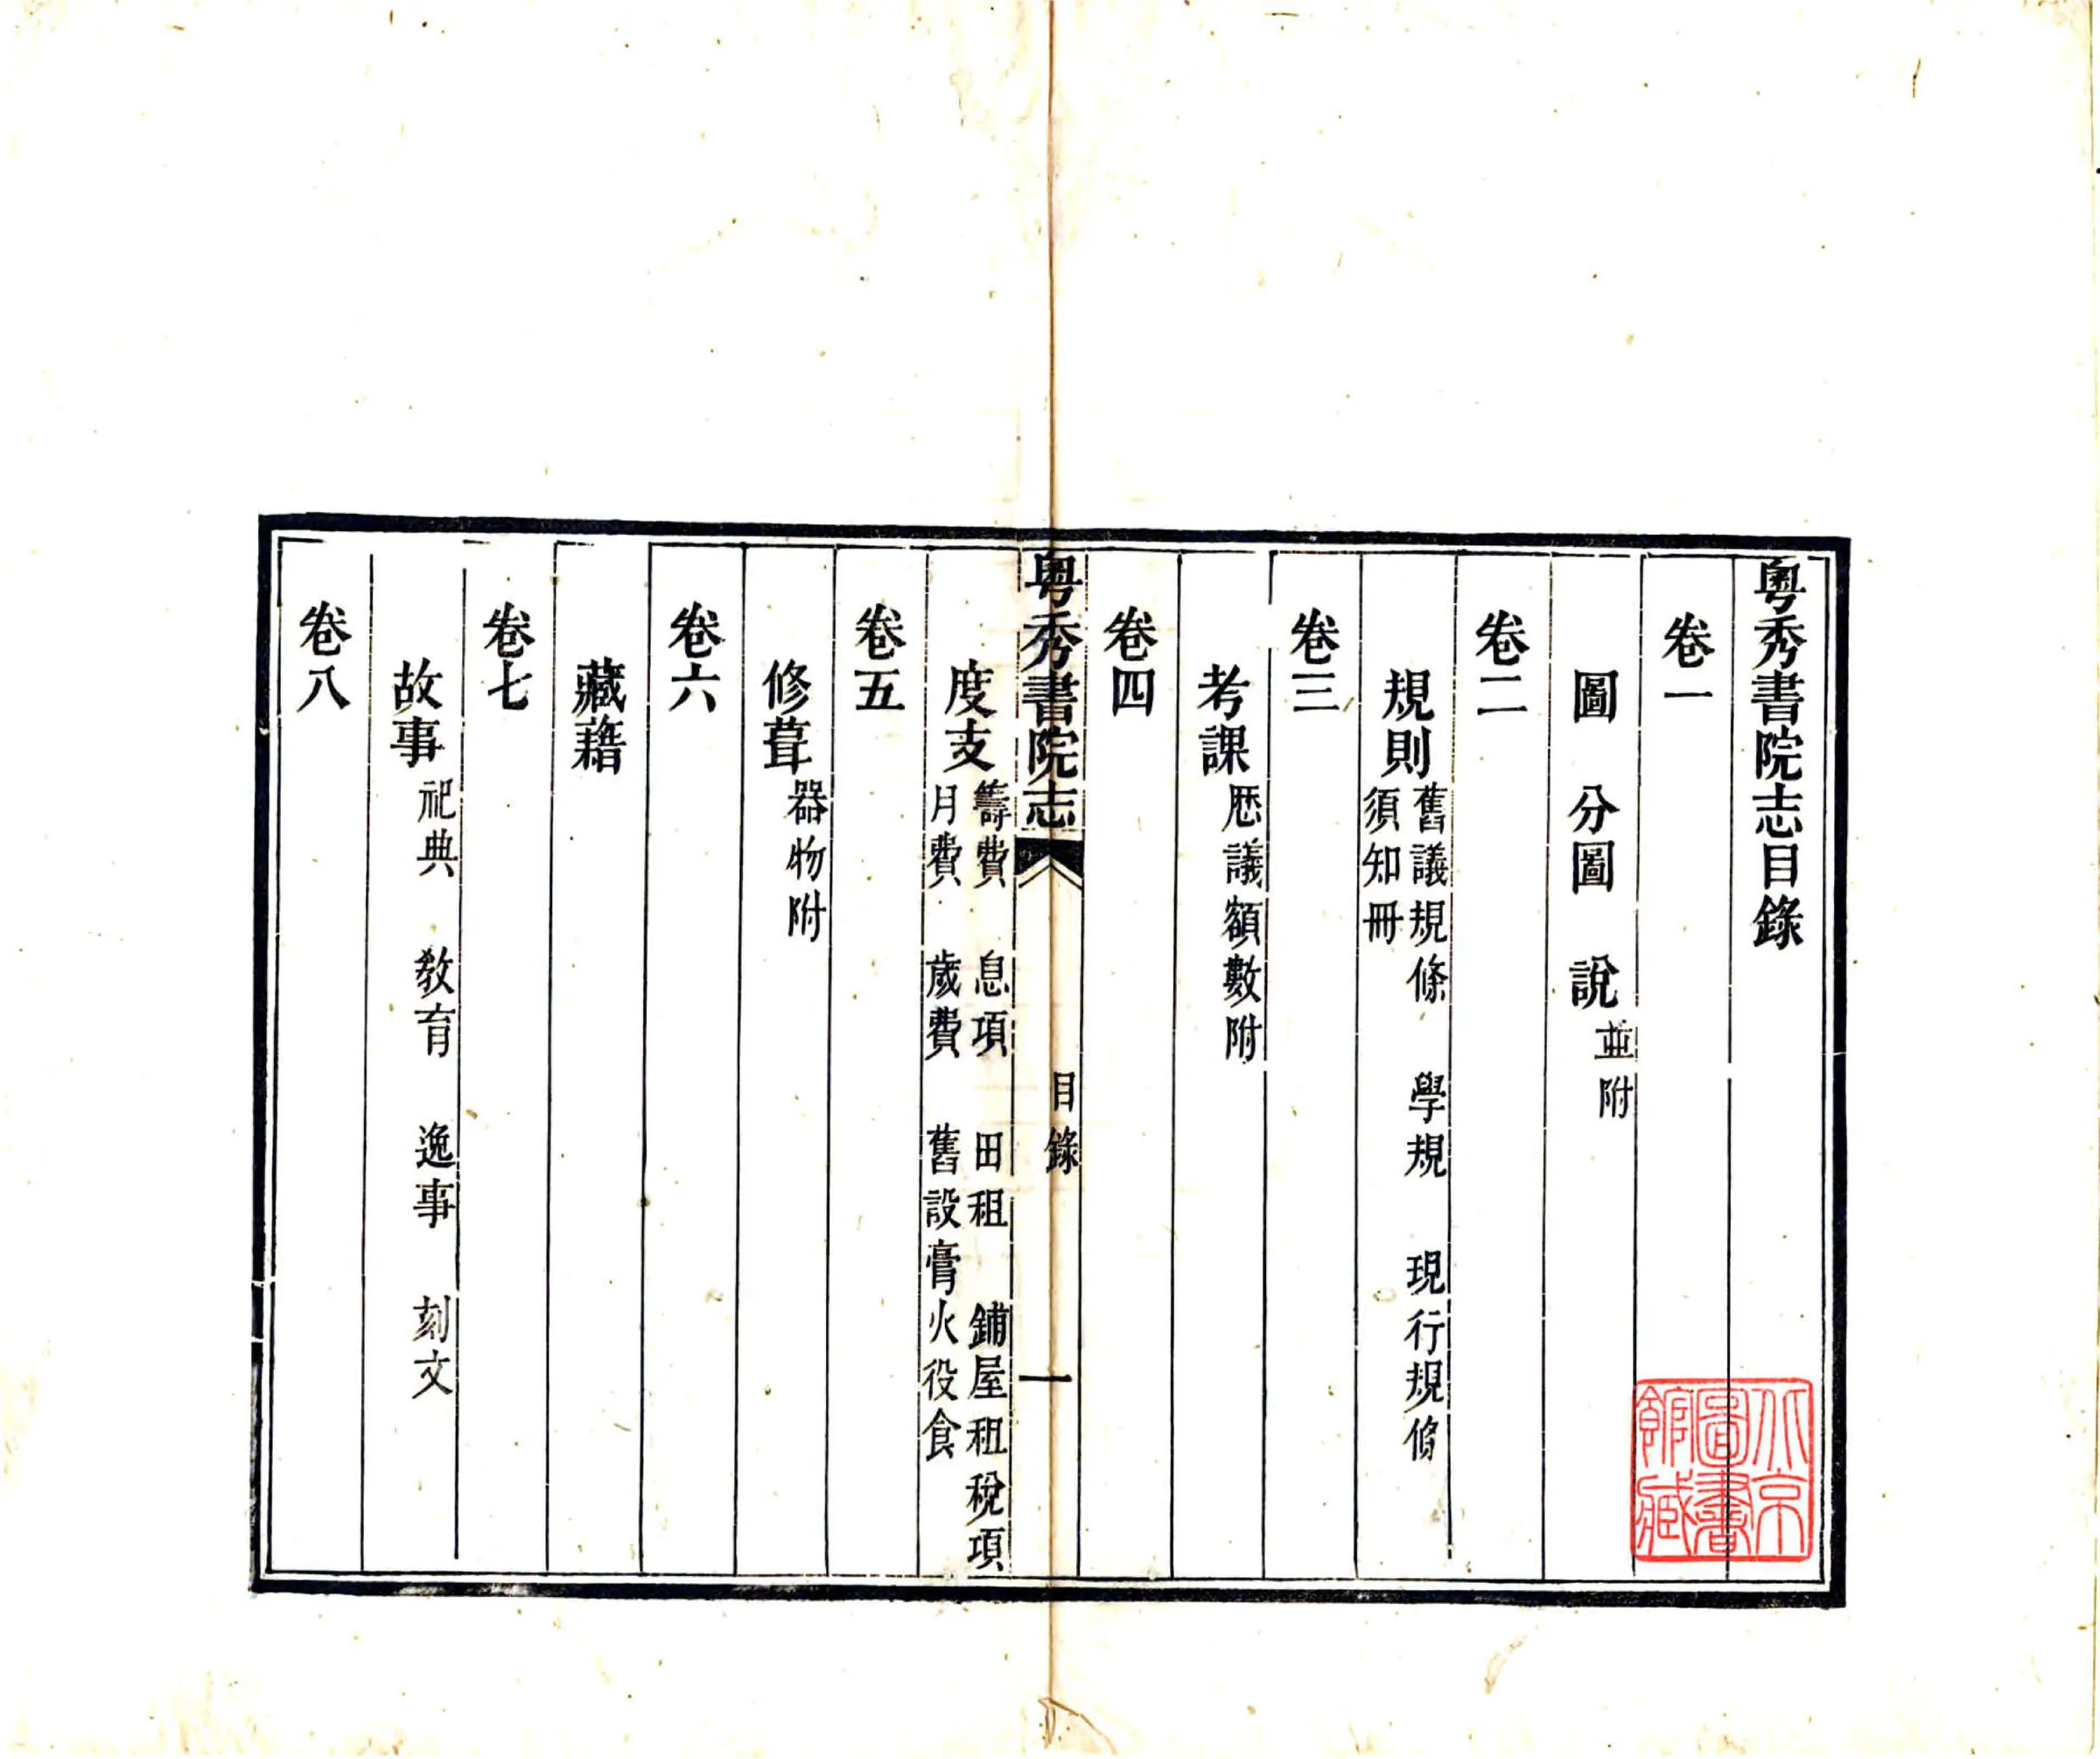 粵秀書院志目錄
卷一
圖　分圖　說並附
卷二
規則舊議規條　學規　現行規條
須知冊
卷三
考課歷議額數附
卷四
粵秀書院志　目錄　一
度支籌費　息項　田租　鋪屋租稅項
月費　歲費　舊設膏火役食
卷五
修葺器物附
卷六
藏藉
卷七
故事祀典　教育　逸事　刻文
卷八
北京
圖書
館藏